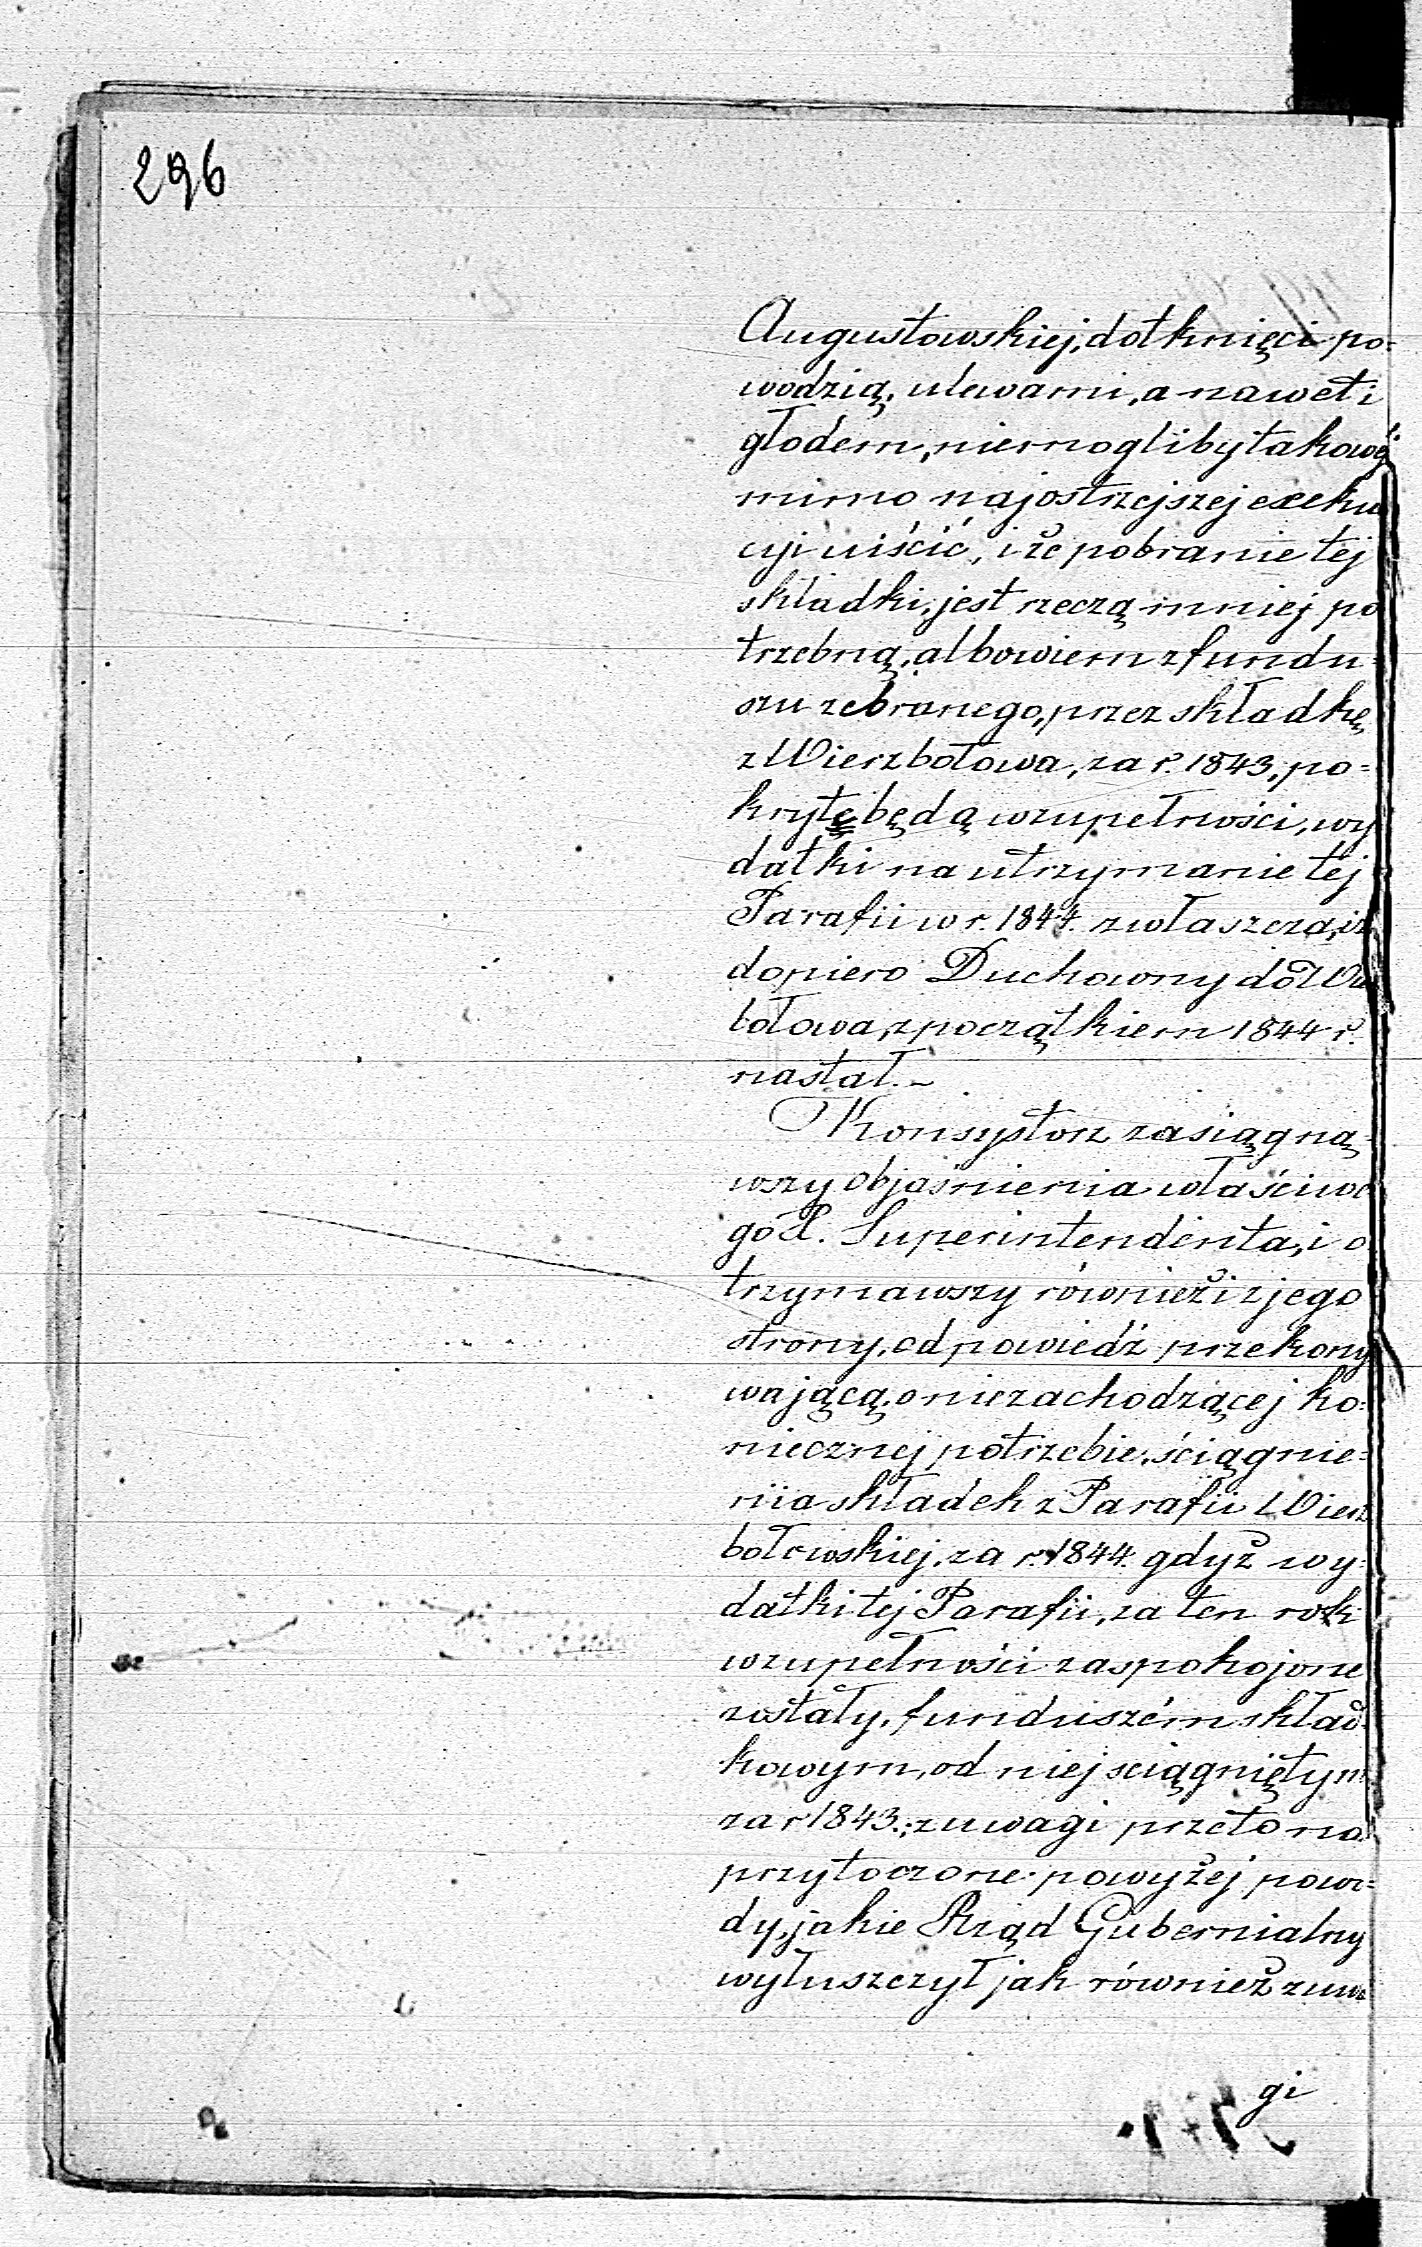 296
Augustowskiej, dotknięci po=
wodzią, ulewami, a nawet i
głodem, niemogliby takowéj
mimo najostrzejszej exeku
cyi uiścić, i że pobranie tej
składki, jest rzeczą mniej po
trzebną, albowiem z fundu=
szu zebranego, przez składkę
z Wierzbołowa, za r. 1843, po=
kryte będą wzupełności, wy
datki na utrzymanie tej
Parafii w r. 1844. zwłaszcza, iż
dopiero Duchowny do
bołowa, z początkiem 1844 r.
nastał. ~
Konsystorz zasiągną=
wszy objaśnienia właściwe
go X. Superintendenta, i o
trzymawszy również i z jego
strony, odpowiedź przekony
wającą, o niezachodzącej ko=
niecznej potrzebie, ściągnie=
nia składek z Parafii Wierz
bołowskiej, za r. 1844. gdyż wy=
datki tej Parafii, za ten rok
wzupełności zaspokojone
zostały, funduszém skład
kowym, od niej sciągniętym
za r 1843.; z uwagi przeto na
przytoczone powyżej powo=
dy, jakie Rząd Gubernialny
wyłuszczył jak również z uwa
gi